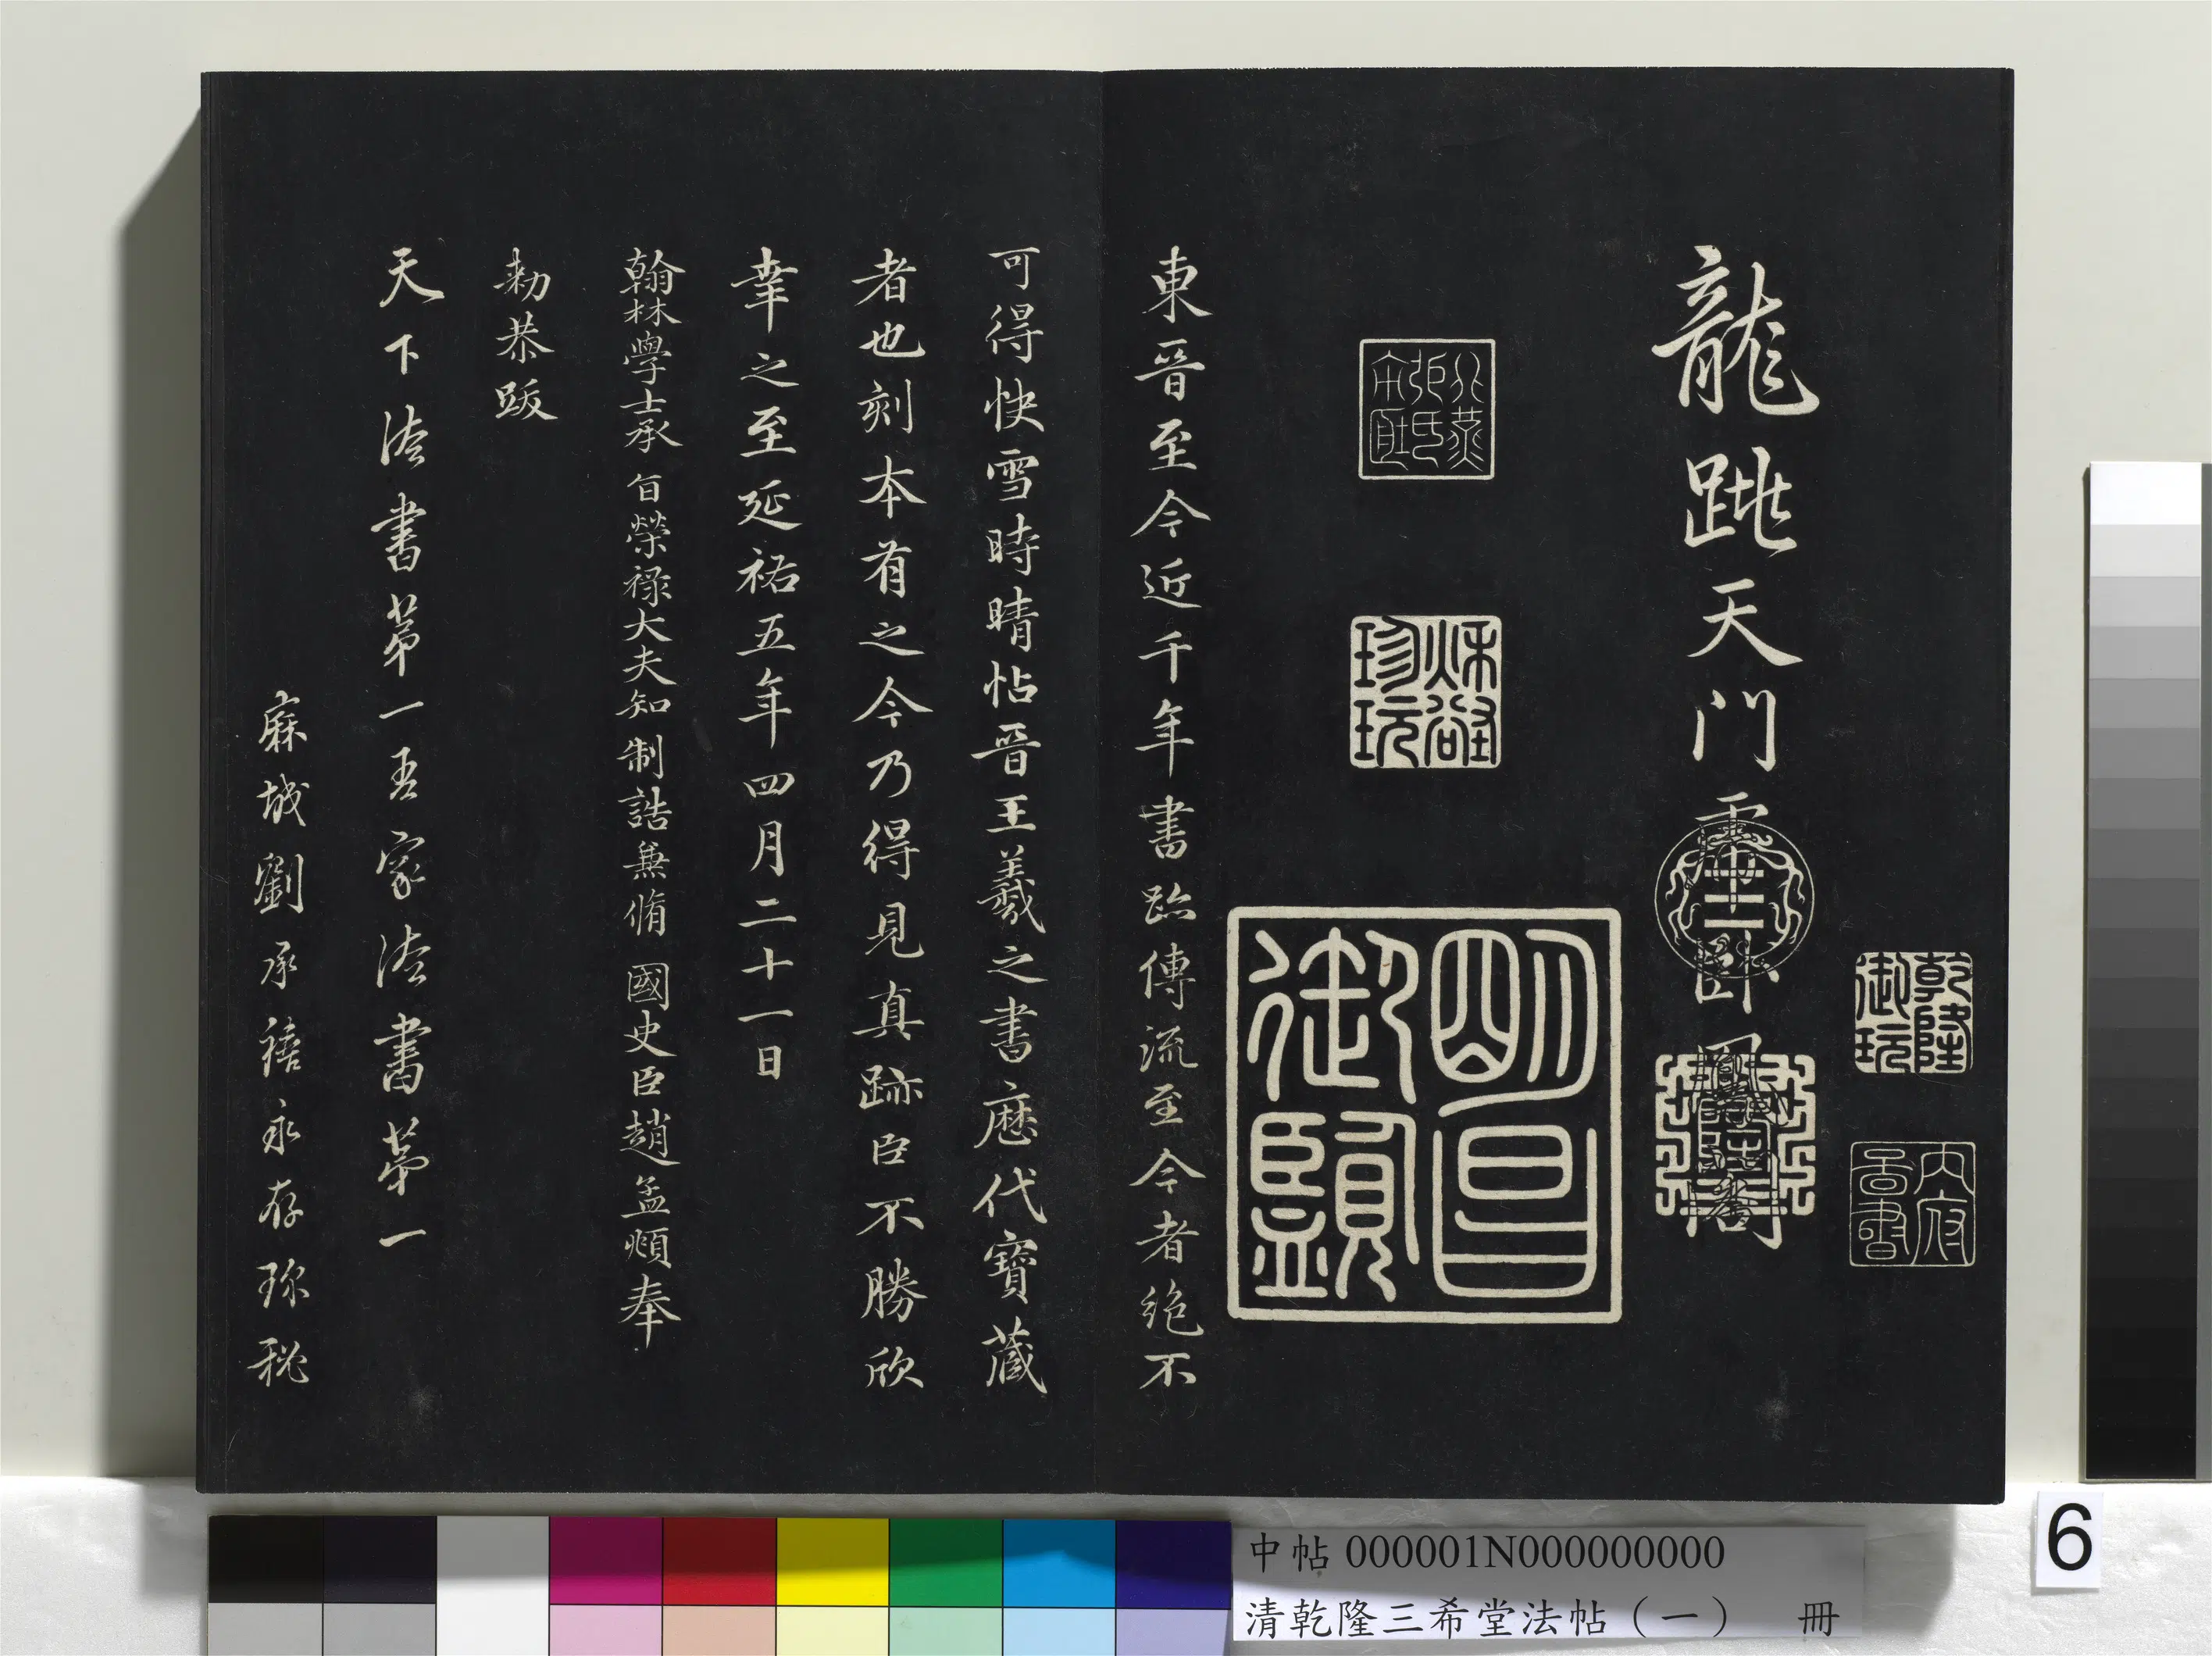 龍跳天門虎卧鳳閣
乾隆御玩
內府
珍玩
明昌御覽
東晉至今近千年書跡傳流至今者絕不
可得快雪時晴帖晉王羲之書歷代寶藏
者也刻本有之今乃得見真跡臣不勝欣
幸之至延祐五年四月二十一日
翰林學士承旨榮祿大夫知制誥兼脩國史臣趙孟頫奉
勑恭跋
天下法書第一吾家法書第一
麻城劉承禧永存珎秘
6
中帖 000001N000000000
清乾隆三希堂法帖（一） 冊